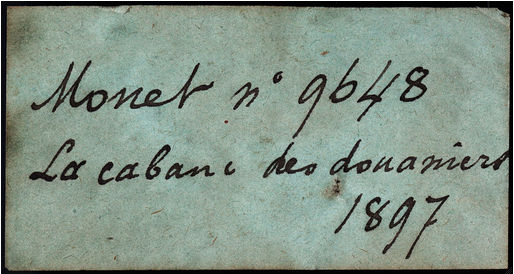 Monet n° 9648
La cabane des douaniers
1897